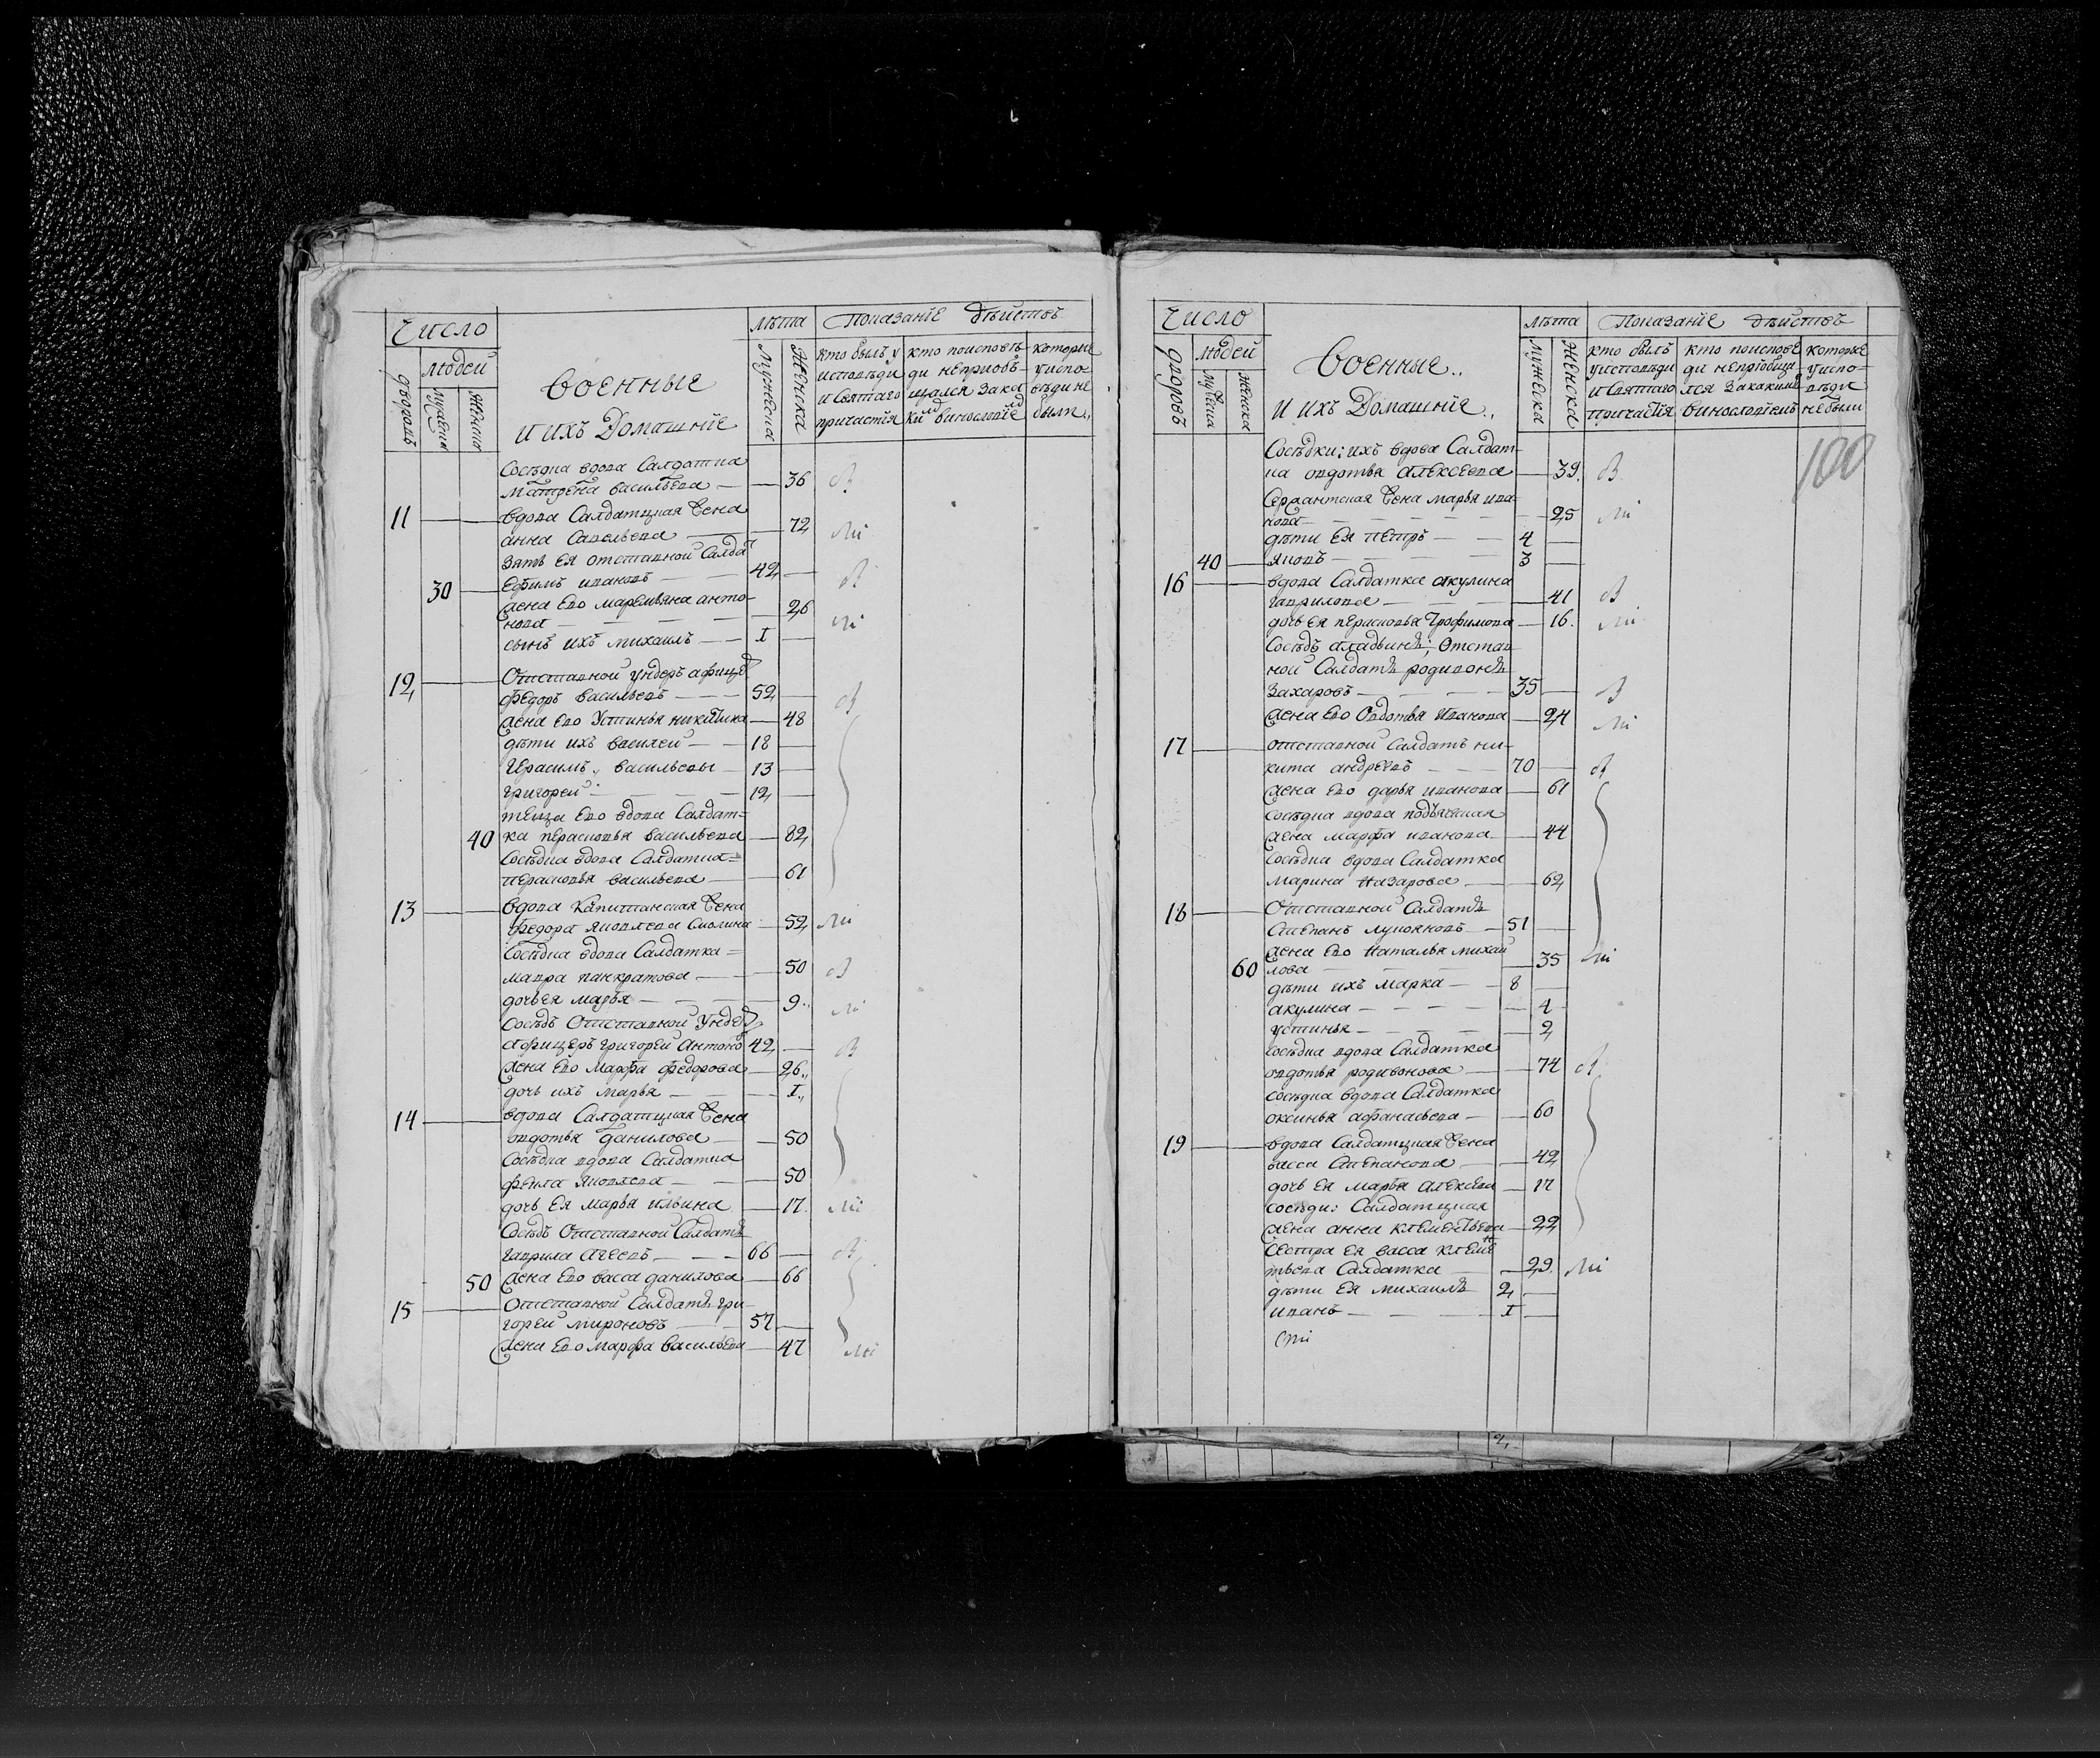 Число
лѣта
Показанїе дѣйствъ
людей
дворовъ
мужеска
женска
военные
и ихъ Домашнїе
мужеска
женска
кто былъ у
исповѣди
и святаго
причастїя
кто поисповѣ
ди неприобъ
щался зака
кимъ винословїемъ
которые
уиспо
вѣди не
были
Сосѣдка вдова Салдатка
Матрена васильева — — 36
11 — вдова Салдатцкая жена
анна Савельева — 72
Зять Ея отставной Салда
30 — Ефимъ ивановъ — 42
жена Ево маремьяна анто
нова — 26
сынъ ихъ михаилъ — 1
12 — Отставной ундеръ афице
федоръ васильевъ — 52
жена Ево Устинья никитина — 48
дѣти ихъ василей — 18
Герасимъ васильевы — 13
григорей — 12
теща Ево вдова Салдат=
40 ка перасковья васильева — 82
Сосѣдка вдова Салдатка=
перасковья васильева — 61
13 — вдова Капитанская жена
федора яковлева Смолина — 52
Сосѣдка вдова Салдатка=
мавра панкратова — 50
дочь ея марья — 9
Сосѣдъ Отставной Ундеръ
афицеръ григорей Антоно 42
жена Ево Марфа федорова — 26
дочь ихъ марья — 1
14 — вдова Салдатцкая жена
овдотья данилова — 50
Сосѣдка вдова Салдатка
фекла яковлева — 50
дочь Ея марья ильина — 17
Сосѣдъ Отставной Салдатъ
гаврила Агеевъ — 66
50 жена Ево васса данилова — 66
15 — Отставной Салдатъ гри
горей мироновъ — 57
жена Ево марфа васильева — 47
Число
лѣта
Показанїе дѣйствъ
дворовъ
людей
мужеска
женска
Военные
и ихъ Домашнїе
мужеска
женска
кто былъ
уисповѣди
и святаго
причастїя
кто поиспове
ди неприобщи
лся закакимъ
винословїемъ
которые
уиспо-
вѣди
небыли
100
Сосѣдки: ихъ вдова Салдат-
ка овдотья Алексеева — 39
Сержантская жена марья ива-
нова — 25
дѣти Ея Петръ — 4
40 — яковъ — 3
16 — вдова Салдатка акулина
гаврилова — 41
дочь ея перасковья Трофимова — 16
Сосѣдъ Отстав
ной Салдатъ родивонъ
Захаровъ — 35
жена Ево Овдотья Иванова — 24
17 — отставной Салдатъ ни-
кита андреевъ — 70
жена Ево дарья иванова — 61
сосѣдка вдова подьяческая
жена марфа иванова — 44
сосѣдка вдова Салдатка
марина Назарова — 62
18 — Отставной Салдатъ
Степанъ лукояновъ — 51
жена Ево Наталья михаи
60 лова — 35
дѣти ихъ Марка — 8
акулина — 4
устинья — 2
сосѣдка вдова Салдатка
овдотья родивонова — 74
сосѣдка вдова Салдатка
оксинья афанасьева — 60
19 — вдова Салдатцкая жена
васса Степанова — 42
дочь Ея Марья Алексеева — 17
сосѣди: Салдатцкая
жена анна клементьева — 22
Сестра Ея васса клемен
тьева Салдатка — 29
дѣти Ея михаилъ 2
иванъ — 1